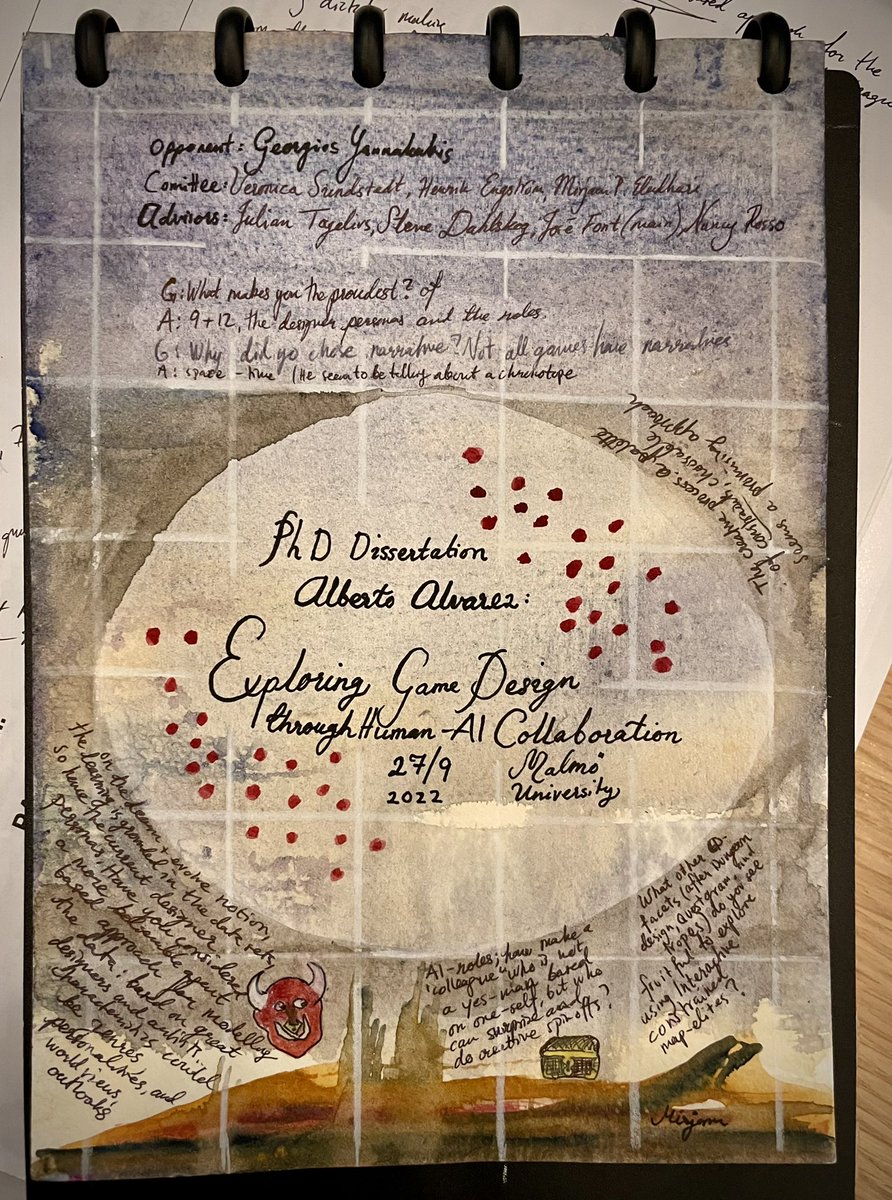 dictat making
for the
Opponent: Georgios Yannakakis
Comittee: Veronica Sundstedt, Henrik Engström, Mirjam P. Eladhari
Advisors: Julian Togelius, Steve Dahlskog, José Font (main), Nancy Rosso
G: What makes you the proudest? of
A: 9+12, the designer personas and the roles.
G: Why did yo chose narrative? Not all games have narratives
A: space - time (He seem to be telling about a chronotope
The creative process a palette
of constraint, choosable
seems a promising approach
PhD Dissertation
Alberto Alvarez:
Exploring Game Design
through Human-AI Collaboration
27/9 Malmö
2022 University
on the learn + evolve notion,
the learning is grounded in the data sets,
so hence the current designer
personas. Have you considered
a more believable agent
based approach for modelling
the data: based on great
designers and authors,
characteristics could
be genres
personalities, and
world views
outlooks
AI-roles; how make a
'colleague' who is not
a yes-man based
on one-self, but who
can surprise and
do creative spin offs?
What other GD-
facets (after Dungeon
design, Questgram and
Tropes) do you see
fruitful to explore
using Interactive
constrained
map-elites?
Mirjam